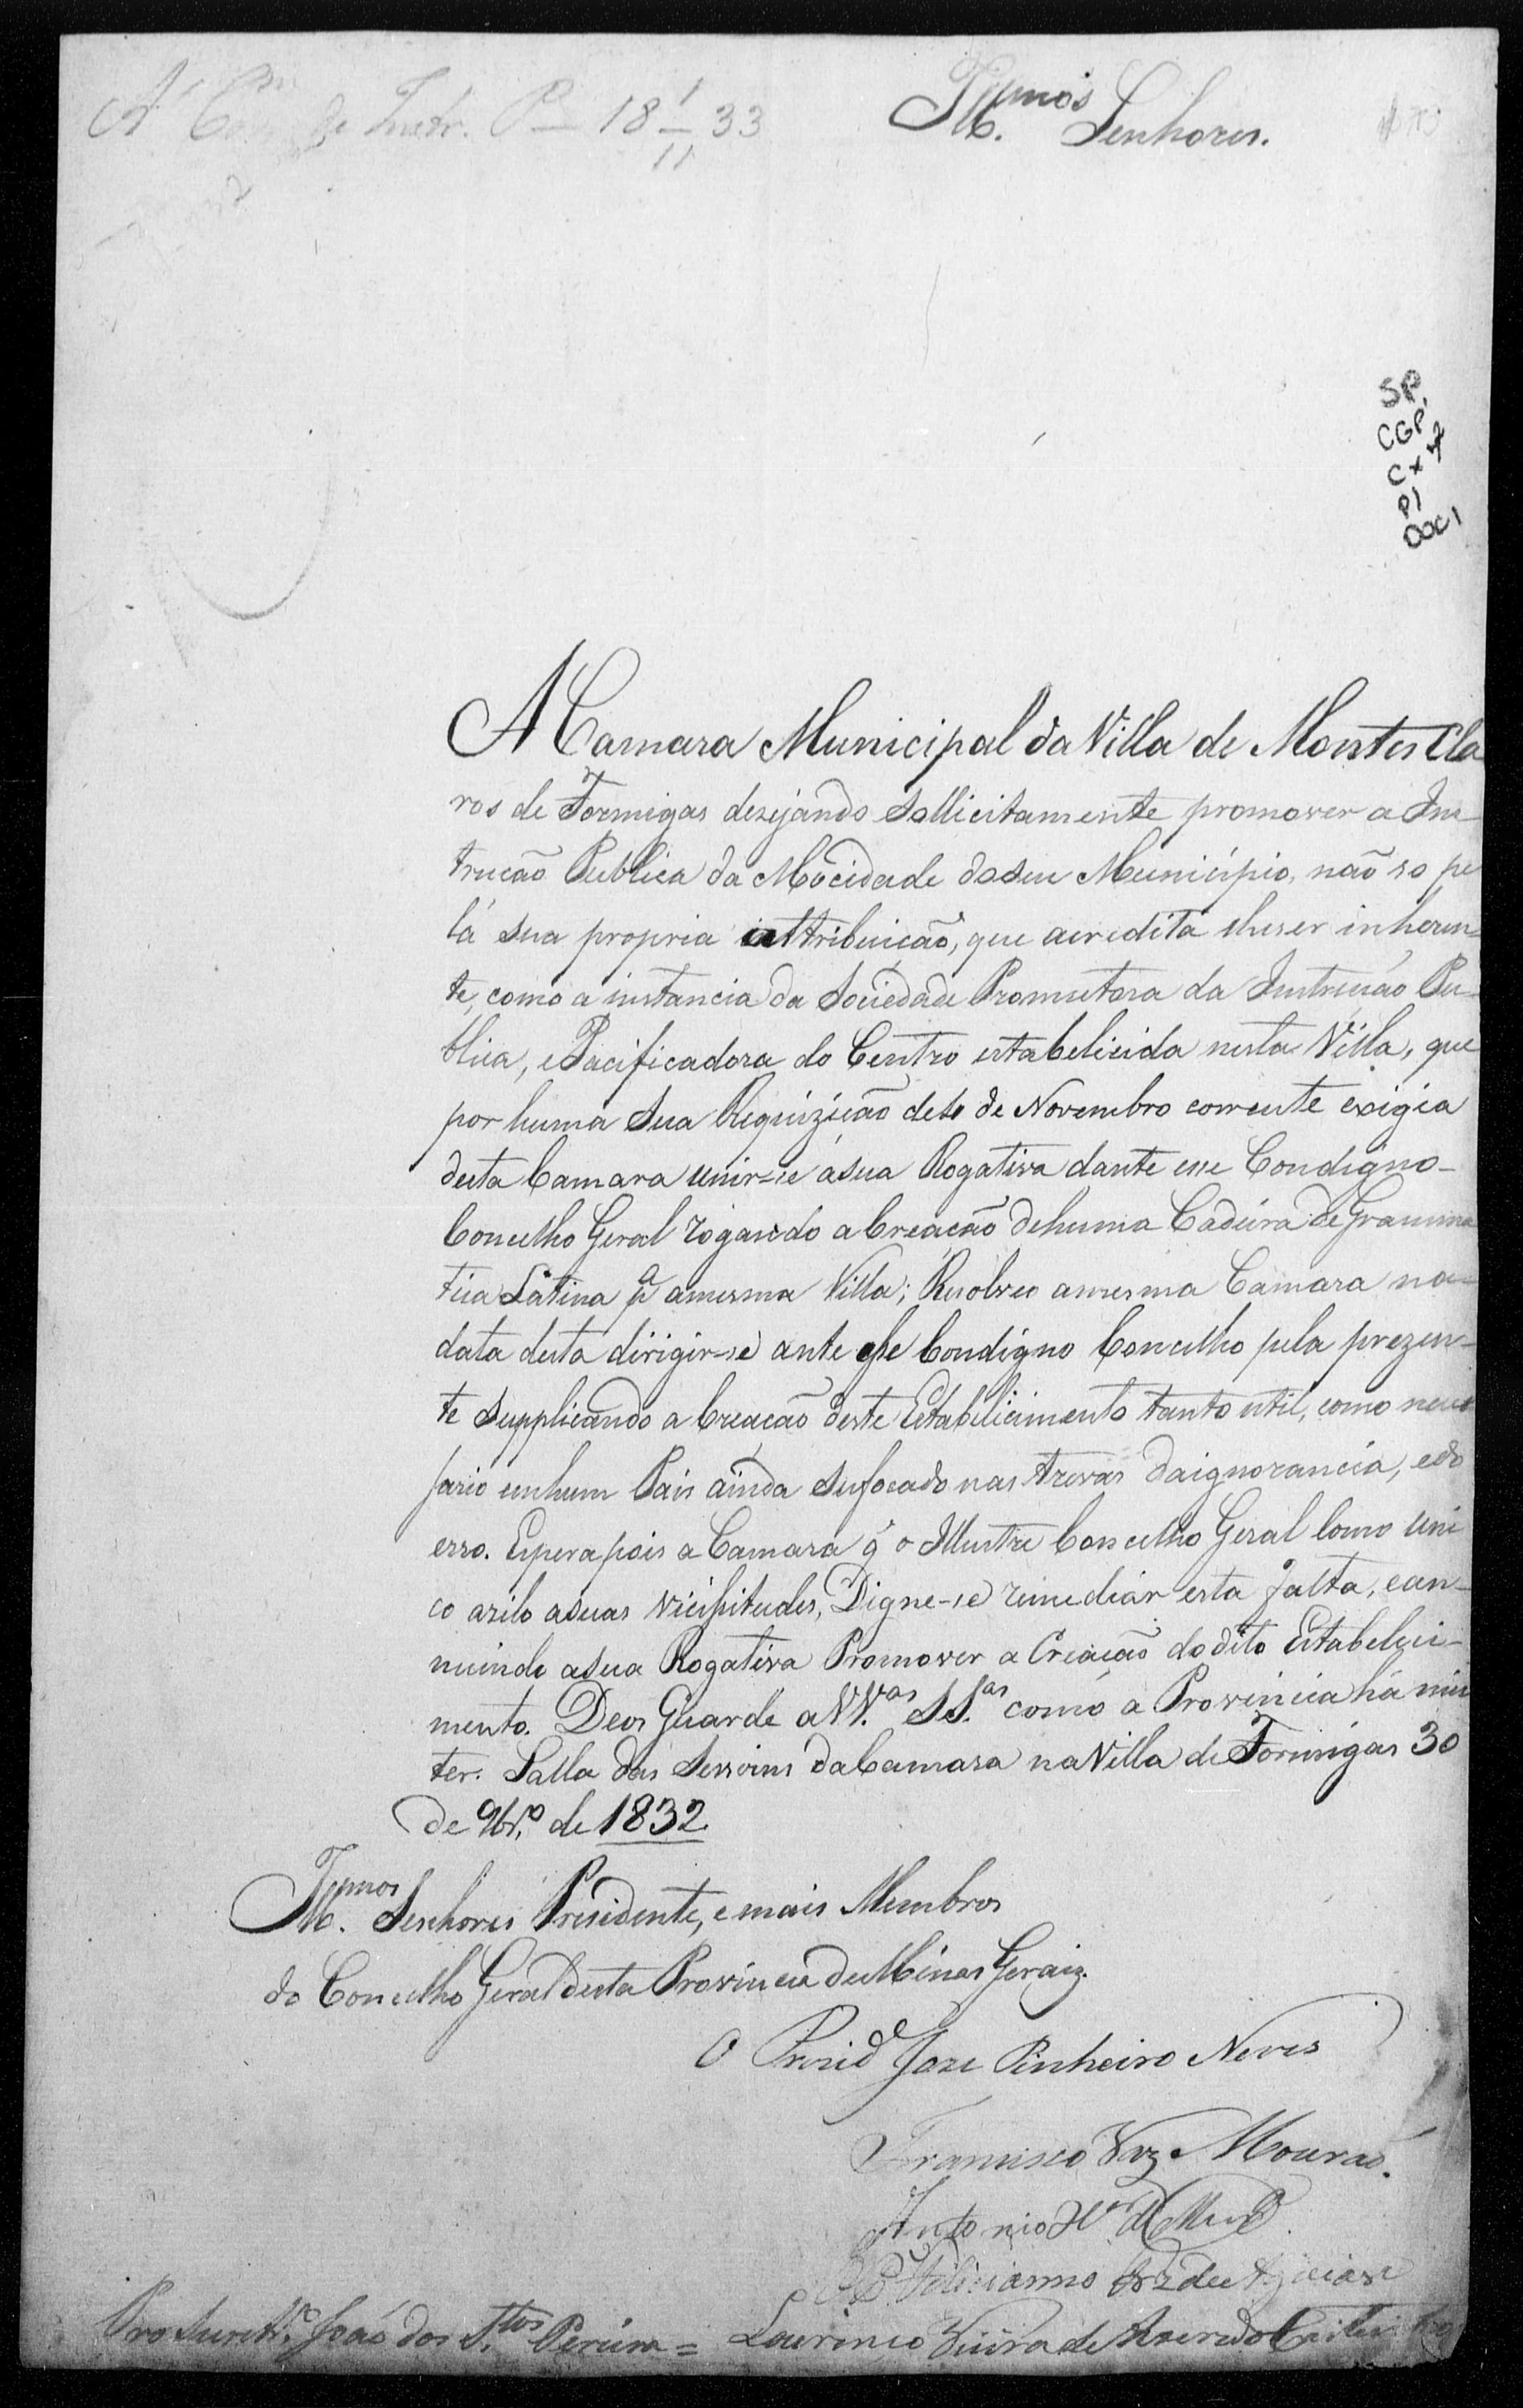 A' Com. de Instr. P. 18 1/11 33
Illmos Senhores.
SP.
CGP.
Cx
P1
Doc 1
A Camara Municipal da Villa de Montes Cla
ros de Formigas dezejando sollicitamente promover a Ins
trucão Publica da Mocidade do seu Municipio, não so pe
lá sua propria attribuicão, que acredita lhe ser inheren=
te, como a instancia da Sociedade Promutora da Instrucáo Pu=
blica, e Pacificadora do Centro estabelicida nesta Villa, que
por huma sua Requizicão de 10 de Novembro corrente exigia
desta Camara unir-se ásua Rogativa dante esse Condigno-
Concelho Geral rogando a Creacão de huma Cadeira de Gramma
tica Latina pa a mesma Villa; Resolveo a mesma Camara na=
data desta dirigir-se ante esse Condigno Concelho pela prezen-
te supplicando a Creacão deste Estabelicimento tanto util, como neces
sario em hum Pais ainda sufocado nas trevas da ignorancia, e do
erro. Espera pois a Camara q̃ o Illustre Concelho Geral como uni
co azilo a suas vicissitudes, Digne-se remediar esta falta, e an-
nuindo a sua Rogativa Promover a Creacão do dito Estabeleci-
mento. Deos Guarde a VV.as SS.as como a Provincia há mis
ter. Salla das Sessoins da Camara na Villa de Formigas 30
de 9br.o de 1832
Illmos Senhores Presidente, e mais Membros
do Concelho Geral desta Provincia de Minas Geraiz.
O Prezide Joze Pinheiro Neves
Francisco Vaz Mourão.
Antonio
Feliciano
Pro Secretr.o João dos S.tos Pereira = Lourenço Vieira de Azeredo Coutinho